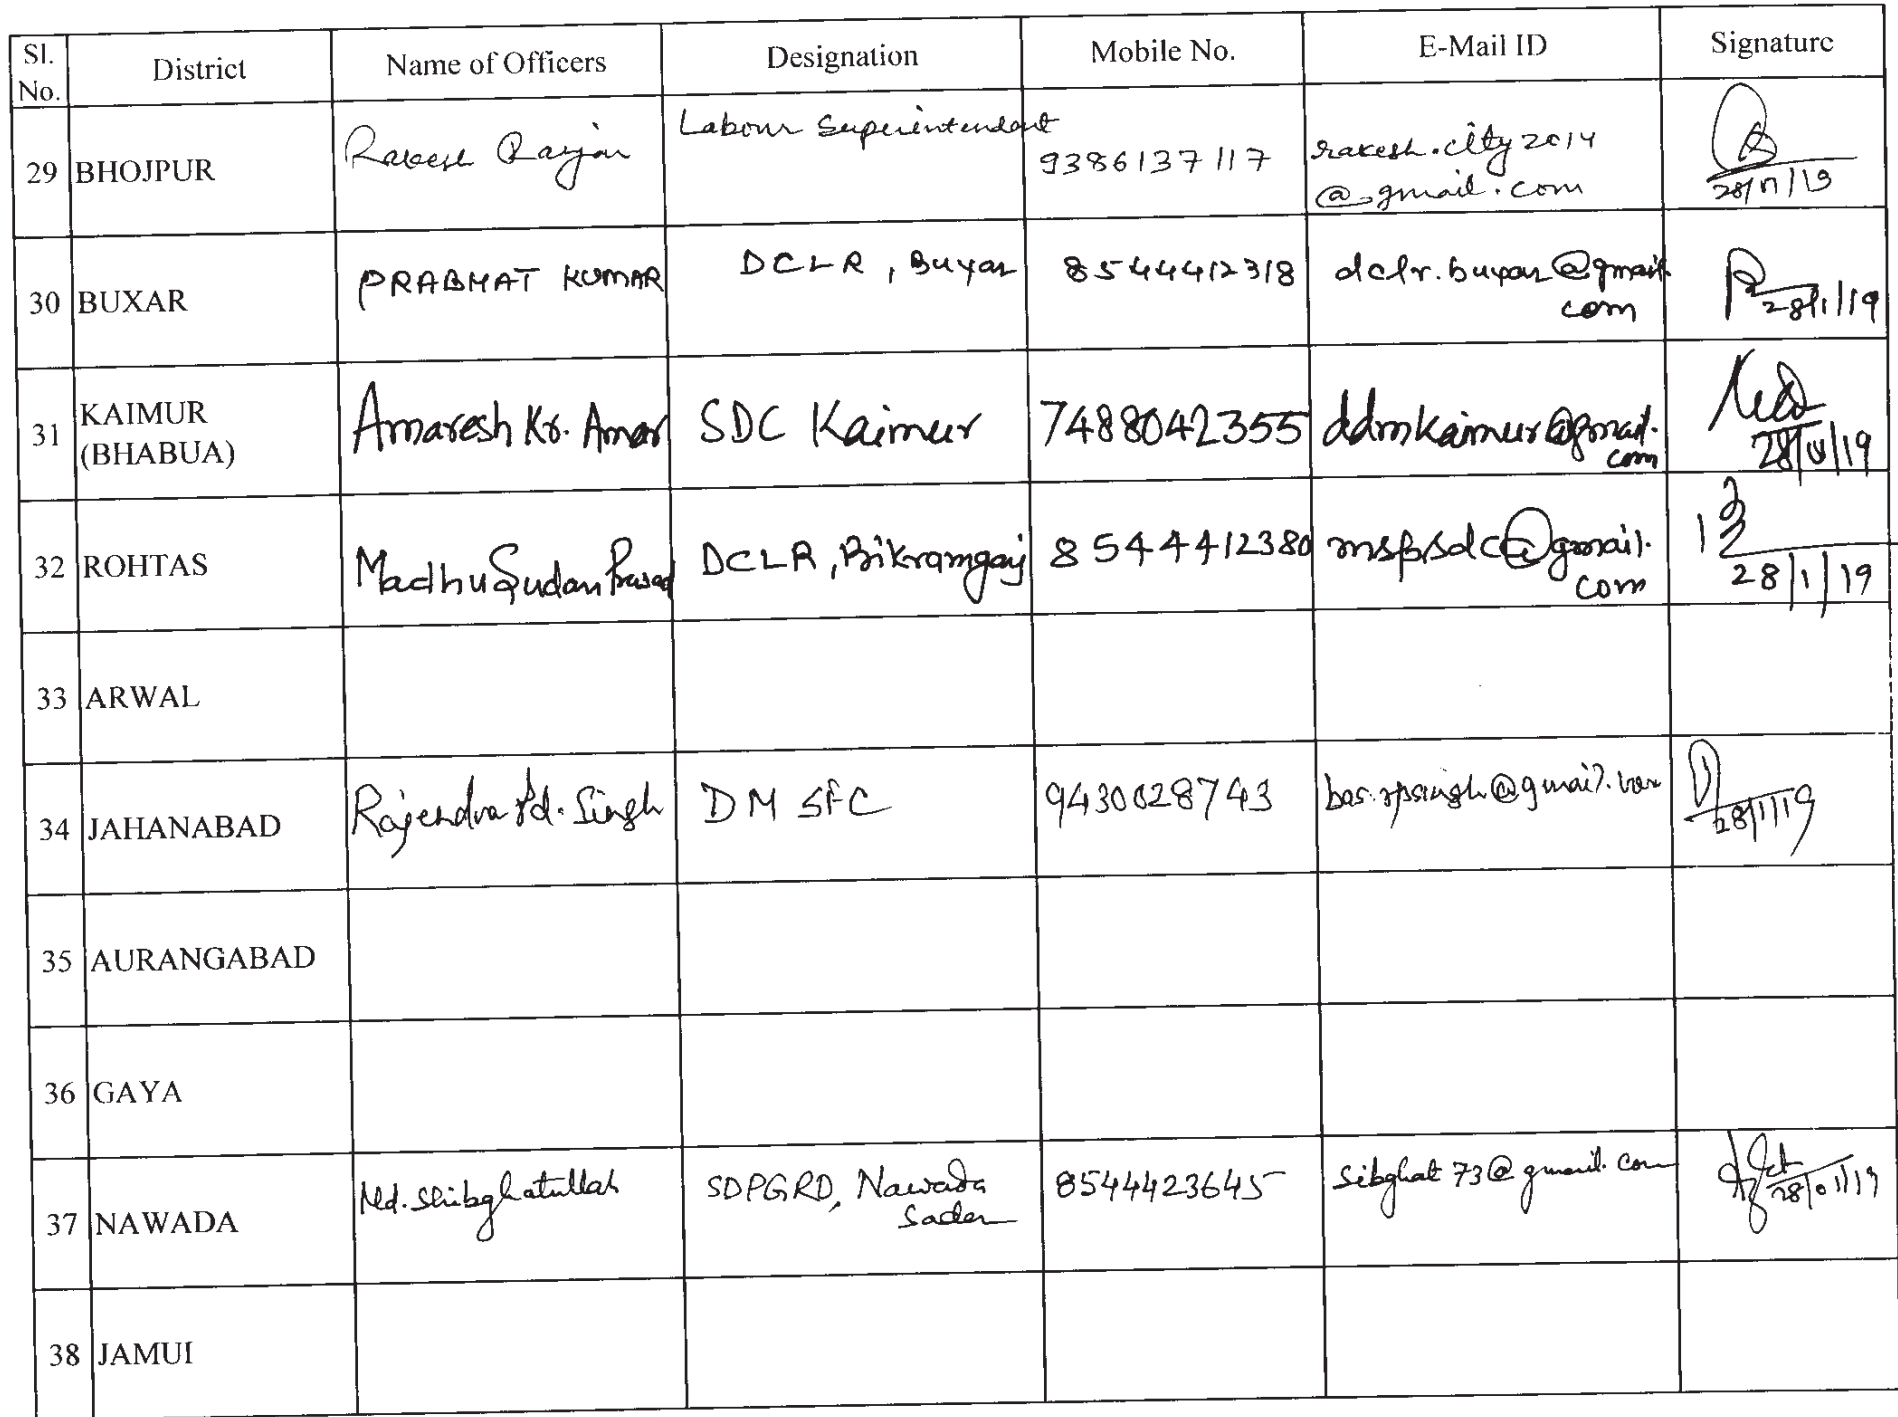 Sl. No. District Name of Officers Designation Mobile No. E-Mail ID Signature
29 BHOJPUR Rakesh Ranjan Labour Superintendent 9386137117 rakesh.city2014
@gmail.com 28/1/19
30 BUXAR PRABHAT KUMAR DCLR, Buxar 8544412318 dclr.buxar@gmail.
com 28/1/19
31 KAIMUR
(BHABUA) Amaresh Kr. Amar SDC Kaimur 7488042355 ddmkaimur@gmail.
com 28/01/19
32 ROHTAS Madhu Sudan Prasad DCLR, Bikramganj 8544412380 mspsdc@gmail.
com 28/1/19
33 ARWAL
34 JAHANABAD Rajendra Pd. Singh DM SFC 9430028743 bas.rpsingh@gmail.com 28/1/19
35 AURANGABAD
36 GAYA
37 NAWADA Md. Shibghatullah SDPGRO, Nawada
Sadar 8544423645 sibghat73@gmail.com 28/01/19
38 JAMUI